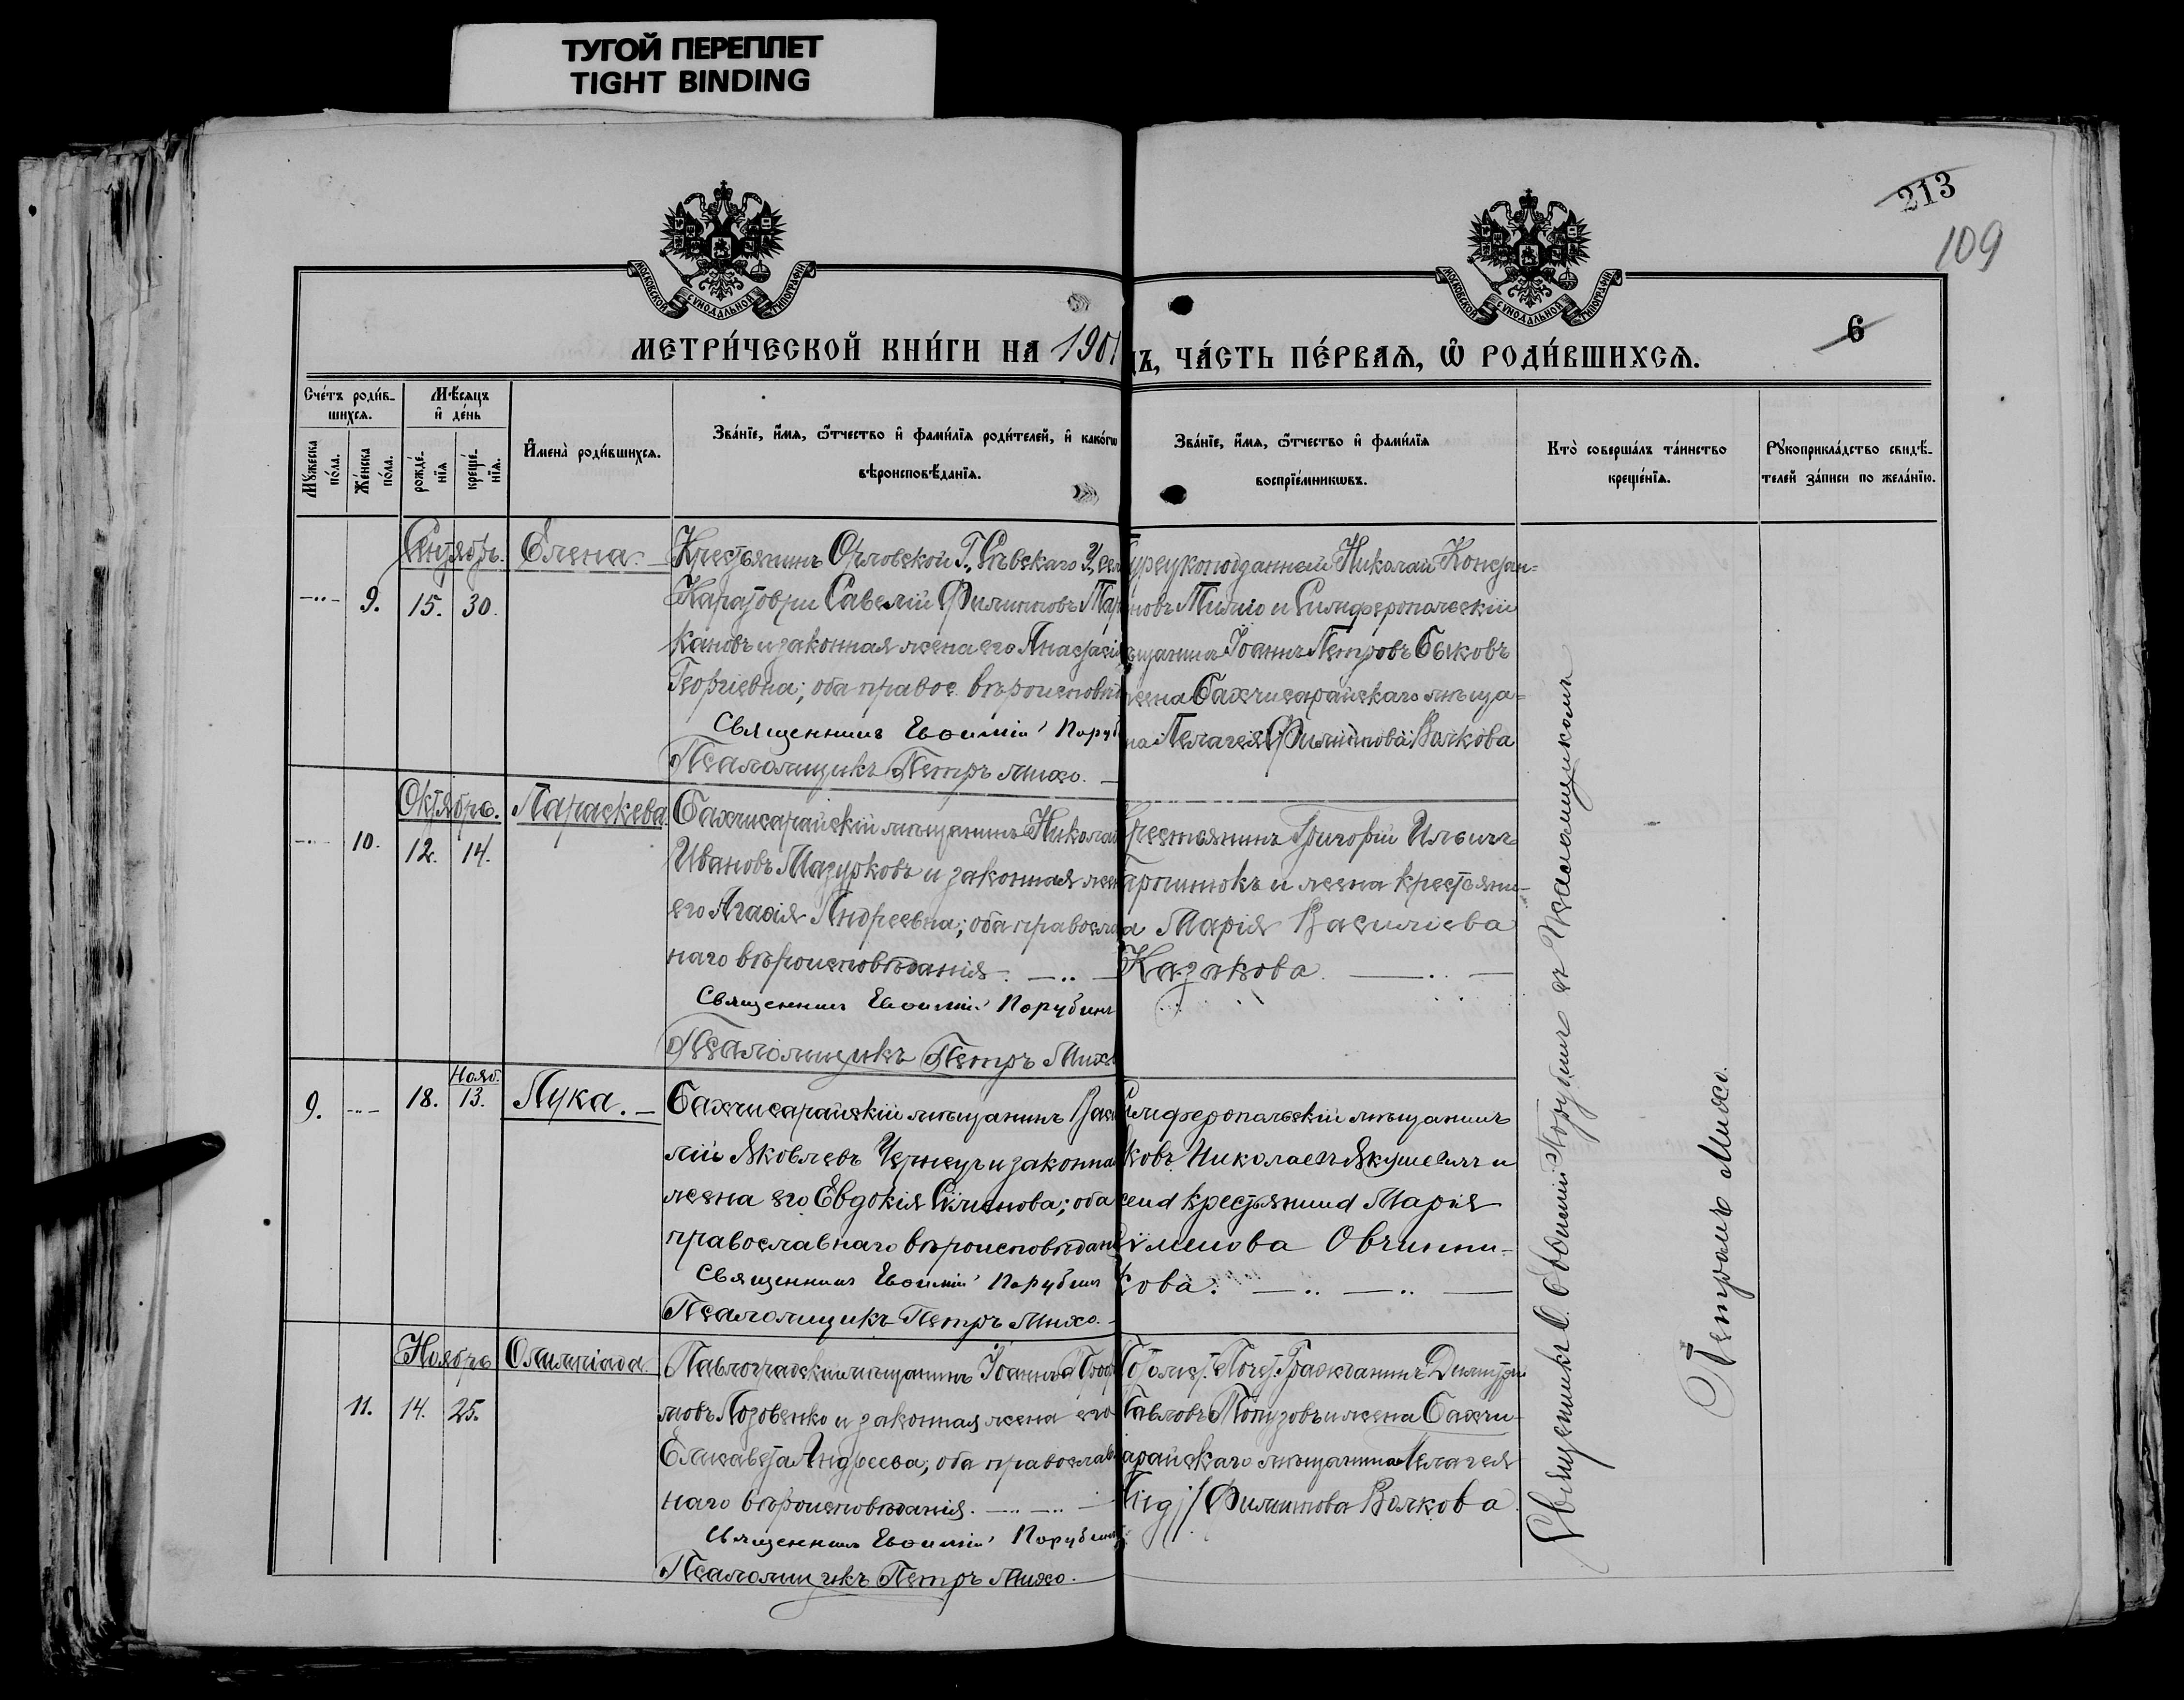 ТУГОЙ ПЕРЕПЛЕТ
TIGHT BINDING
213
109
6
МОСКОВСКОЙ СѴНОДАЛЬНОЙ ТИПОГРАФІИ
МОСКОВСКОЙ СѴНОДАЛЬНОЙ ТИПОГРАФІИ
МЕТРИ́ЧЕСКОЙ КНИ́ГИ НА 190
ДЪ, ЧА́СТЬ ПЕ́РВАѦ, Ѡ҆ РОДИ́ВШИХСѦ.
Сче́тъ роди́в-
шихсѧ.
Мꙋ́жеска по́ла.
Же́нска по́ла.
Мѣ́сѧцъ
и҆ де́нь
рожде́-
нїѧ
креще́-
нїѧ.
И҆мена̀ роди́вшихсѧ.
Зва́нїе, и҆́мѧ, ѻ҆́тчество и҆ фами́лїѧ роди́телей, и҆ како́гѡ
вѣроисповѣ́данїѧ.
Зва́нїе, и҆́мѧ, ѻ҆́тчество и҆ фами́лїѧ
воспрїе́мникѡвъ.
Кто̀ соверша́лъ та́инство
креще́нїѧ.
Рꙋкоприкла́дство свидѣ́-
телей за́писи по жела́нїю.
Сентябрь.
9. 15. 30.
Елена.
Крестьянинъ Орловской Г., Сѣвскаго У., сел
Савелій Филипповъ Тар
кановъ и законная жена его Анастасія
Георгіевна; оба правос. вѣроисповѣд
Священникъ Евѳимій Поруб
Псаломщикъ Петръ Михо.
урецкоподданный Николай Констан-
новъ и Симферопольскій
ѣщанинъ Іоаннъ Петровъ Быковъ
жена Бахчисарайскаго мѣща-
на Пелагея Филиппова Волкова
Октябрь.
10. 12. 14.
Параскева
Бахчисарайскій мѣщанинъ Николай
Ивановъ Мазурковъ и законная жен
его Агаѳія Андреевна; оба правосла
наго вѣроисповѣданія.
Священникъ Евѳимій Порубин
Псаломщикъ Петръ Михо
крестьянинъ Григорій Ильичъ
и жена крестьяни-
а Марія Василіева
Казакова
9. 18. Нояб. 13.
Лука.
Бахчисарайскій мѣщанинъ Васи
лій Яковлевъ Чернецъ и законна
жена его Евдокія Сѵмонова; оба
православнаго вѣроисповѣдан
Священникъ Евѳимій Порубин
Псаломщикъ Петръ Михо.
имферопольскій мѣщанинъ
ковъ Николаевъ Якушевичъ и
жена крестьянина Марія
Овчинни-
кова.
Ноябрь
11. 14. 25.
Олимпіада.
Павлоградскій мѣщанинъ Іоаннъ Троф
мовъ Лозовенко и законная жена его
Елисавета Андреева; оба православ
наго вѣроисповѣданія.
Священникъ Евѳимій Порубин
Псаломщикъ Петръ Михо.
Потомст. Почет. Гражданинъ Димитрій
Павловъ и жена Бахчи-
сарайскаго мѣщанина Пелагея
Филиппова Волкова
Священникъ Евѳимій Порубинъ съ Псаломщикомъ
Петромъ Михо.